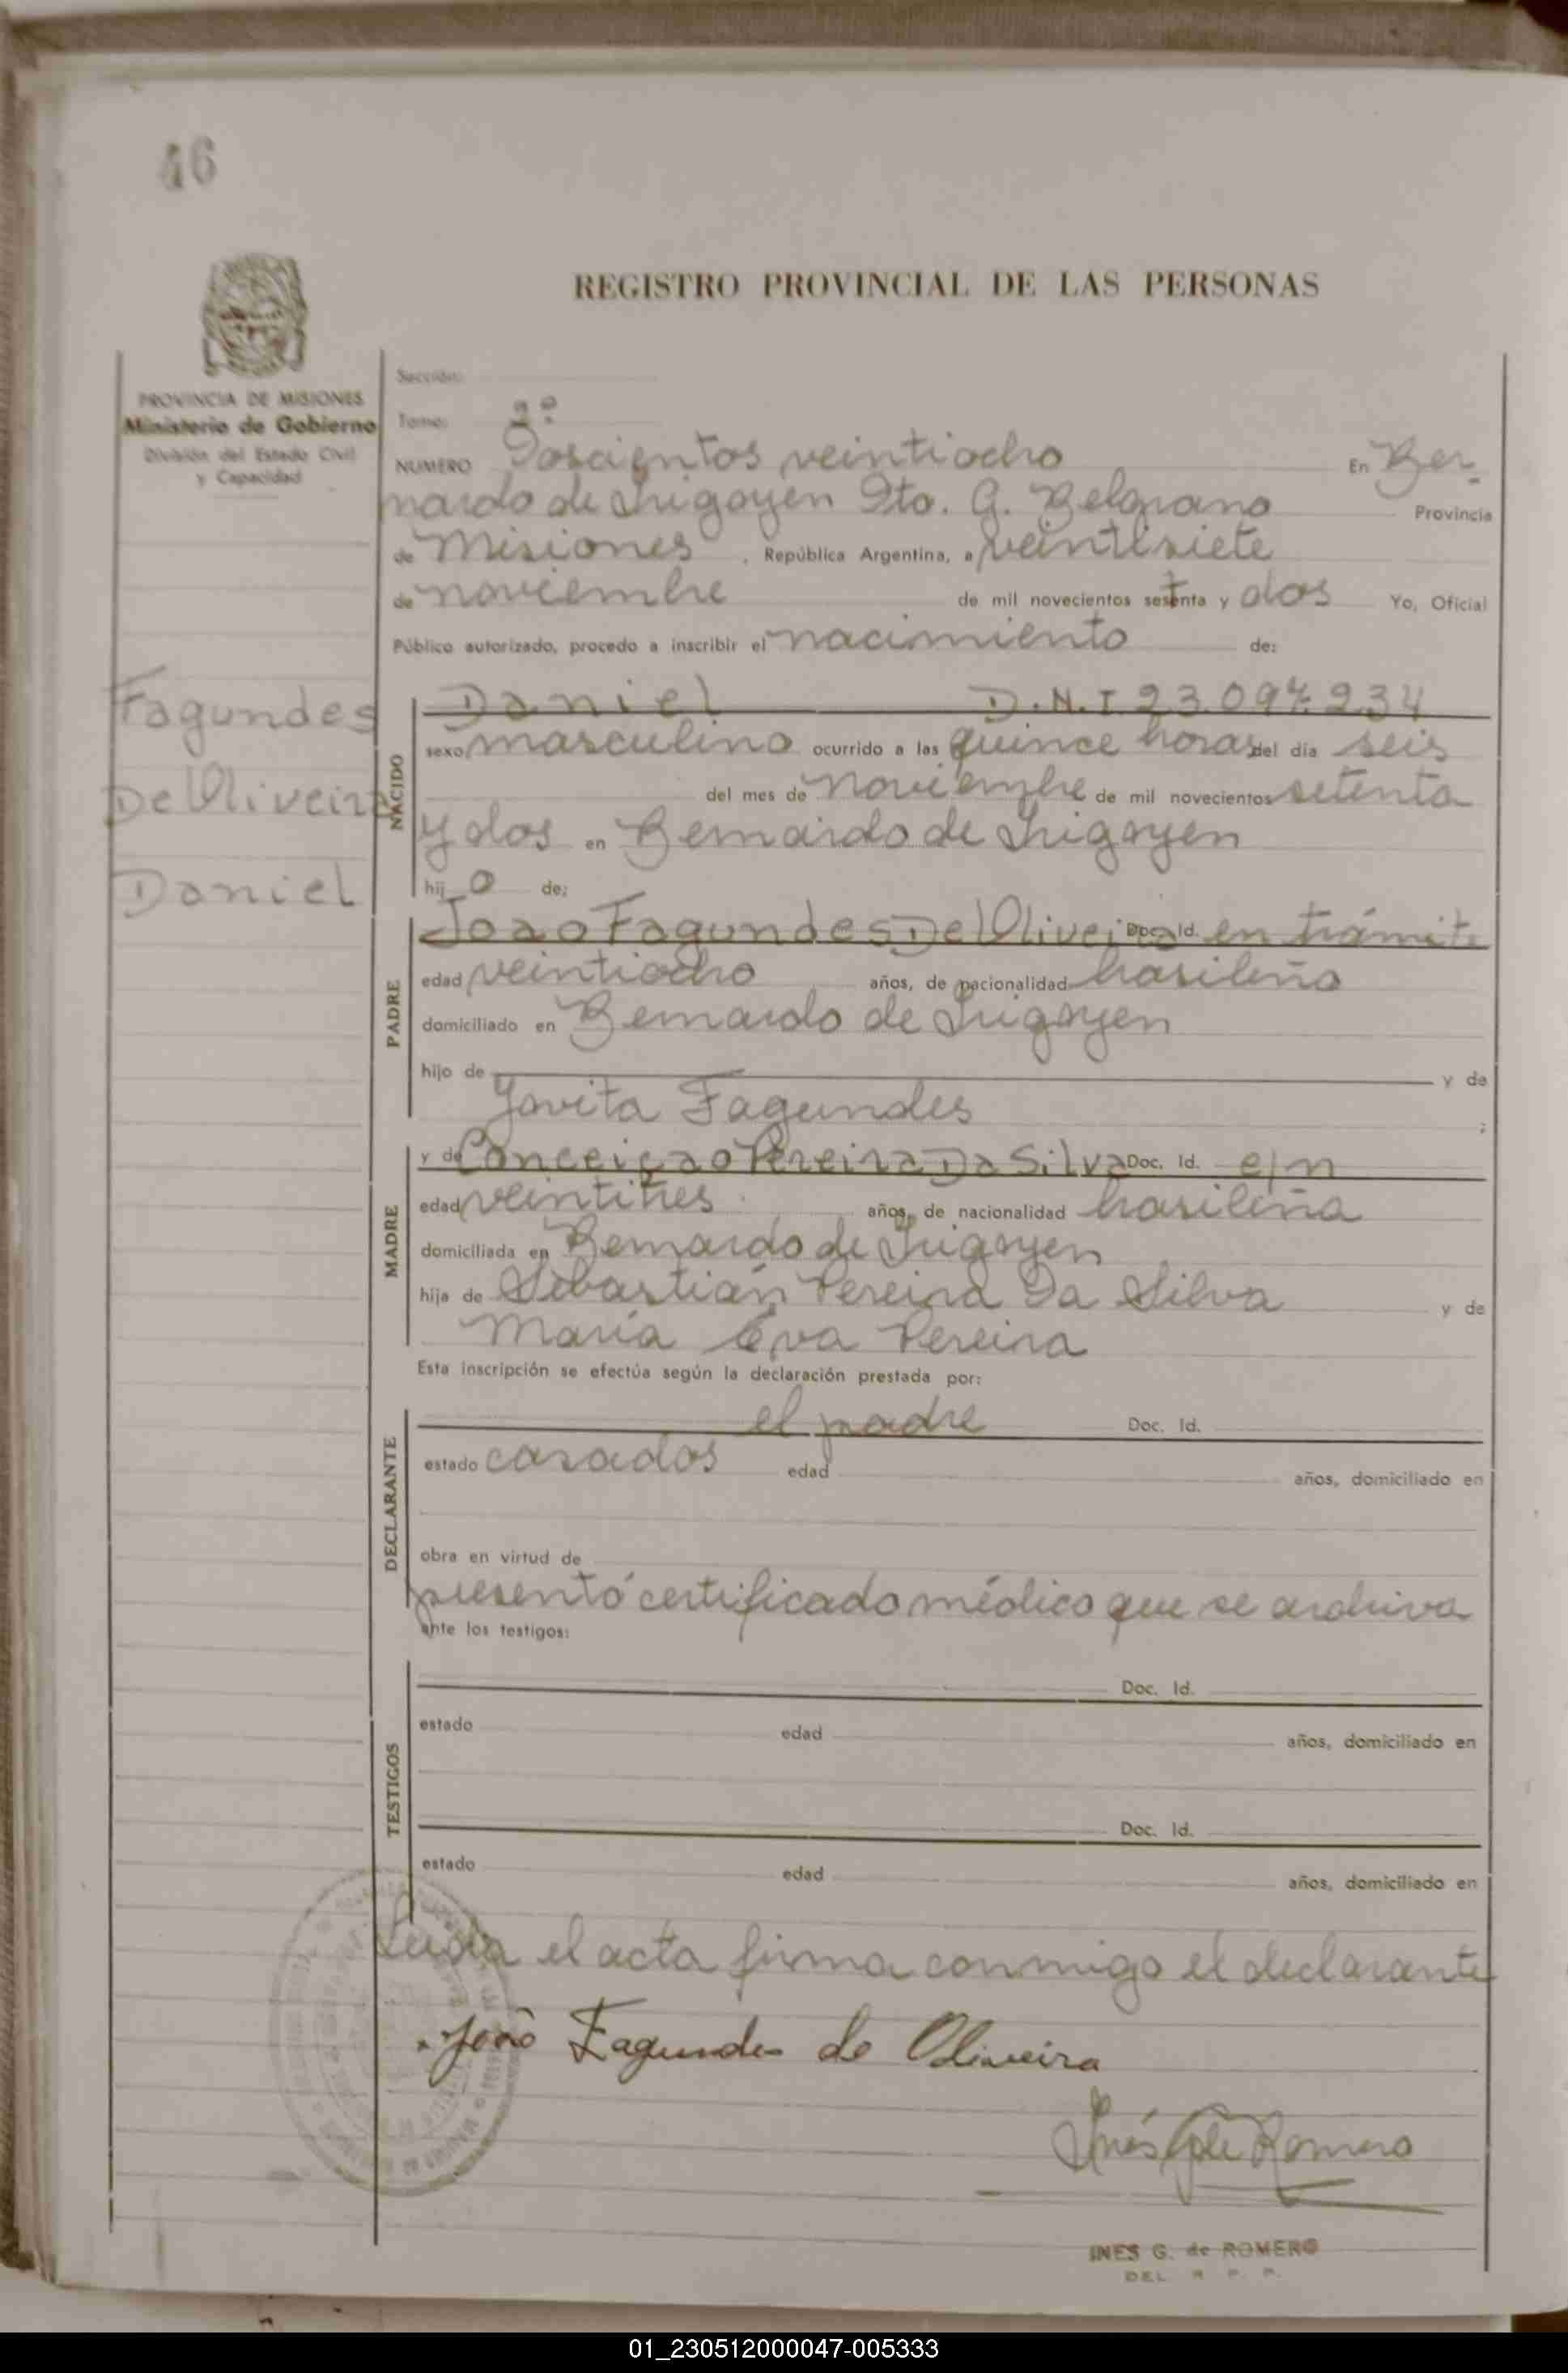 46
REGISTRO PROVINCIAL DE LAS PERSONAS
PROVINCIA DE MISIONES
Ministerio de Gobierno
División del Estado Civil
y Capacidad
Sección:
Tomo: 2º
NUMERO Doscientos veintiocho En Ber-
nardo de Irigoyen Dto. G. Belgrano Provincia
de Misiones, República Argentina, a veintisiete
de noviembre de mil novecientos setenta y dos Yo, Oficial
Público autorizado, procedo a inscribir el nacimiento de:
Fagundes
De Oliveira
Daniel
NACIDO
Daniel D.N.I 23.097.234
sexo masculino ocurrido a las quince horas del día seis
del mes de noviembre de mil novecientos setenta
y dos en Bernardo de Irigoyen
hij o de:
PADRE
Joao Fagundes De Oliveira Doc. Id. en trámite
edad veintiocho años, de nacionalidad brasileño
domiciliado en Bernardo de Irigoyen
hijo de y de
Jovita Fagundes ;
MADRE
y de Conceiçao Pereira Da Silva Doc. Id. e/n
edad veintitres años, de nacionalidad brasileña
domiciliada en Bernardo de Irigoyen
hija de Sebastián Pereira Da Silva y de
María Eva Pereira
Esta inscripción se efectúa según la declaración prestada por:
DECLARANTE
el padre Doc. Id.
estado casados edad años, domiciliado en
obra en virtud de
presentó certificado médico que se archiva
ante los testigos:
TESTIGOS
Doc. Id.
estado edad años, domiciliado en
Doc. Id.
estado edad años, domiciliado en
Leída el acta firma conmigo el declarante
João Fagundes de Oliveira
Inés G de Romero
INES G. de ROMERO
DEL R. P. P.
01_230512000047-005333